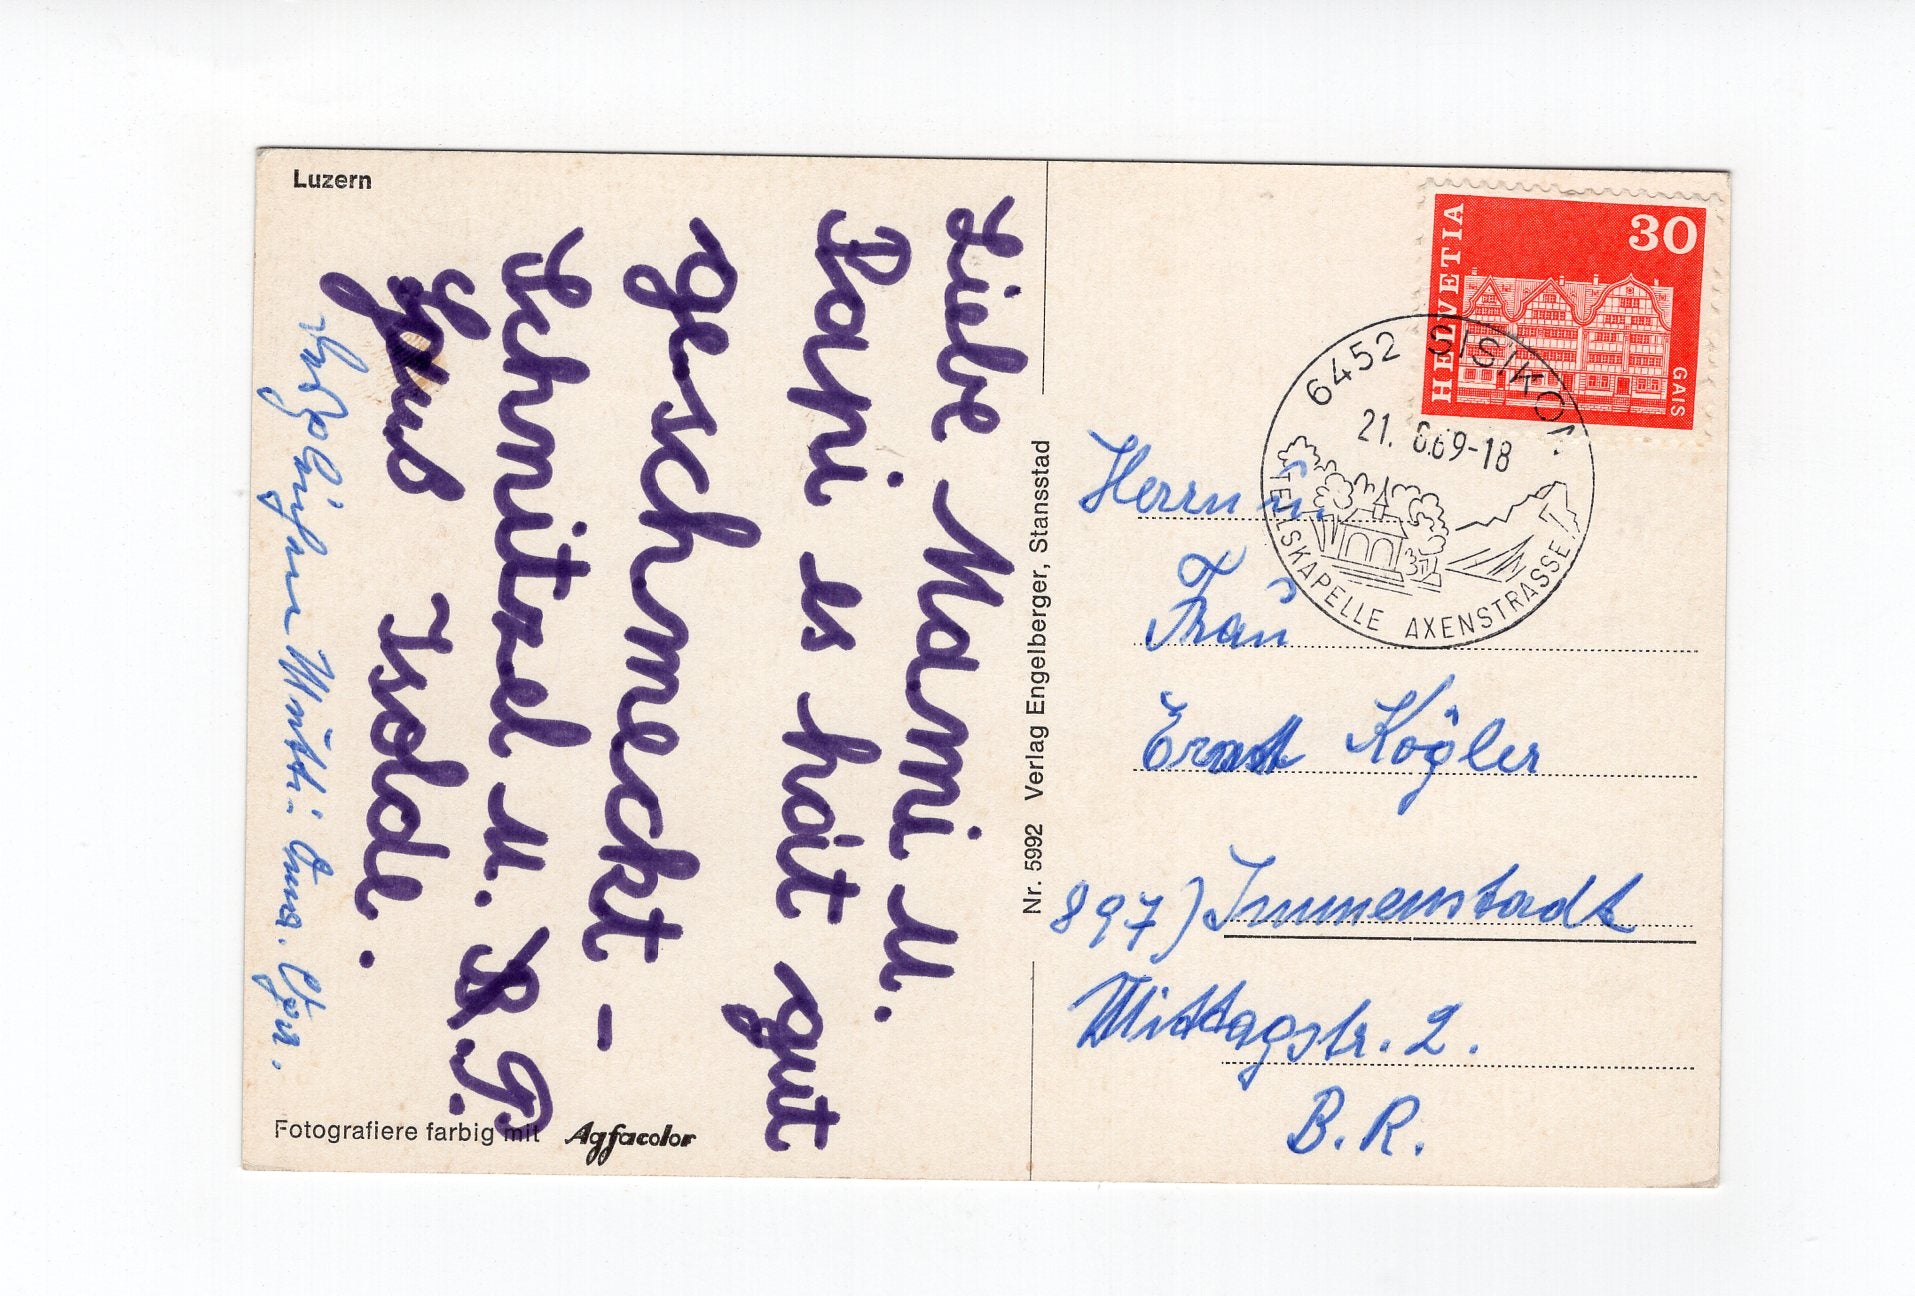 Luzern
Liebe Mami u.
Papi es hat gut
geschmeckt -
Schnitzel u. P.
Gruß Isolde.
Fotografiere farbig mit Agfacolor
Nr. 5992 Verlag Engelberger, Stansstad
HELVETIA
30
GAIS
6452 SISIKON
21. 6.69-18
TELLSKAPELLE AXENSTRASSE
Herrn u.
Frau
Ernst Kögler
897) Immenstadt
Mittagstr. 2.
B.R.